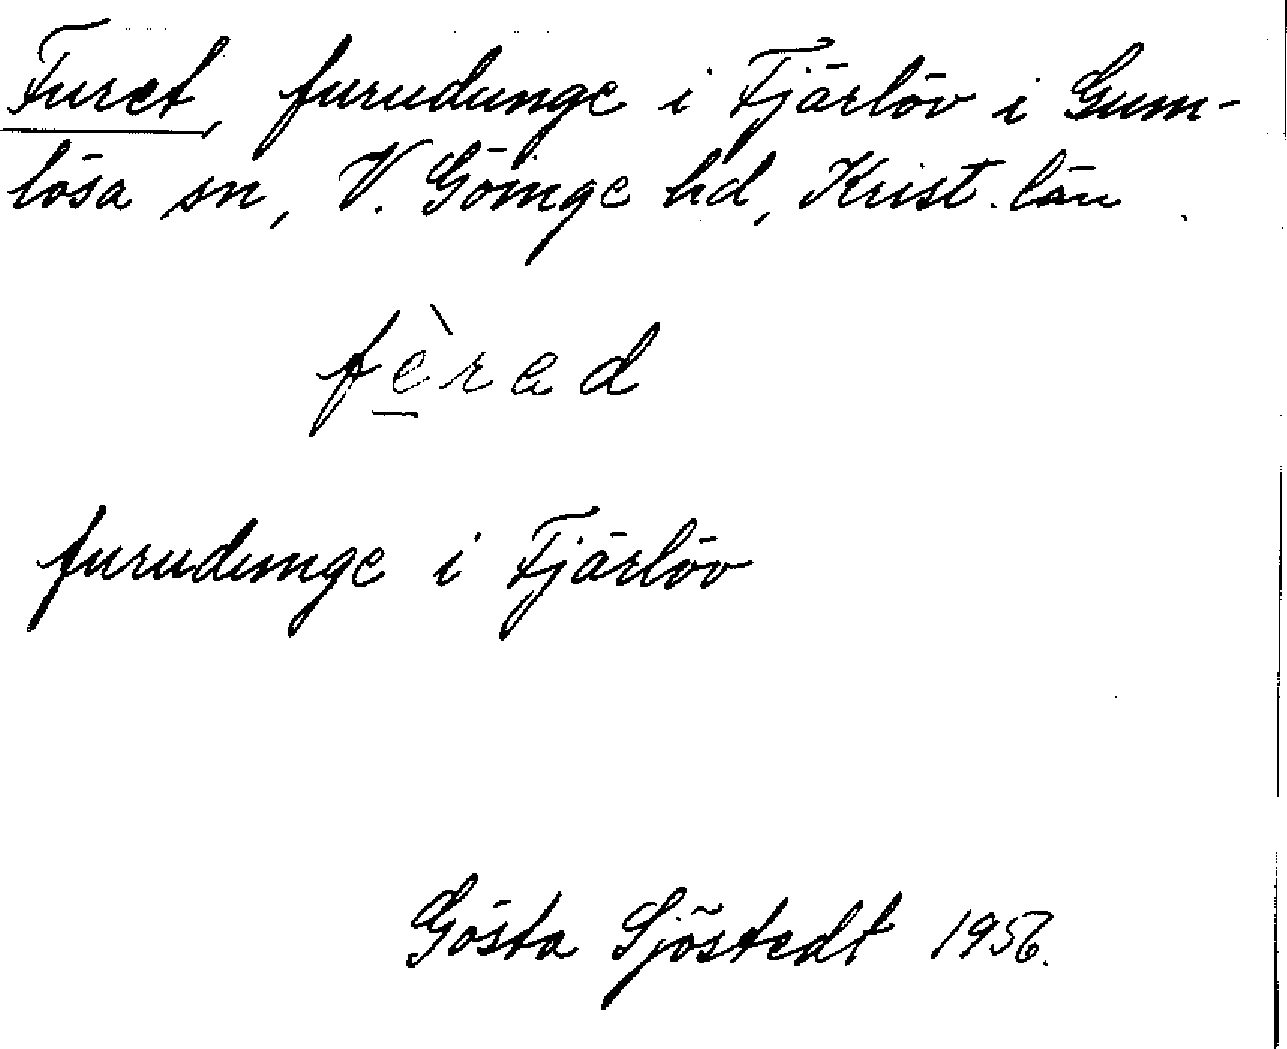 Furet, furudunge i Fjärlöv i Gum-
lösa sn, V. Göinge hd, Krist. län.
fèrad
furudunge i Fjärlöv
Gösta Sjöstedt 1956.